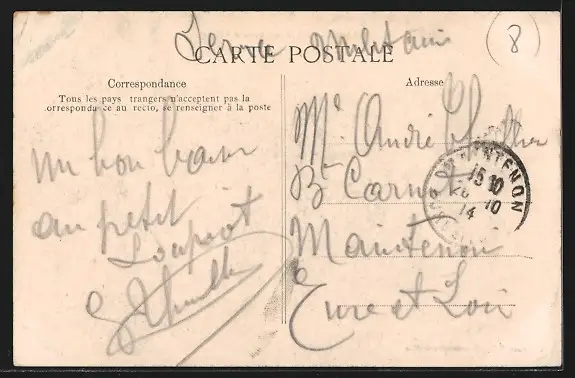 Militaire
8
CARTE POSTALE
Correspondance
Tous les pays trangers n'acceptent pas la
orrespondu ce au recio, se renseigner à la poste
un bon baiser
au petit
Loupiot
Adresse
Mr André
Bd Carnot
Maintenon
Eure et Loir
MAINTENON
15 10
10
14